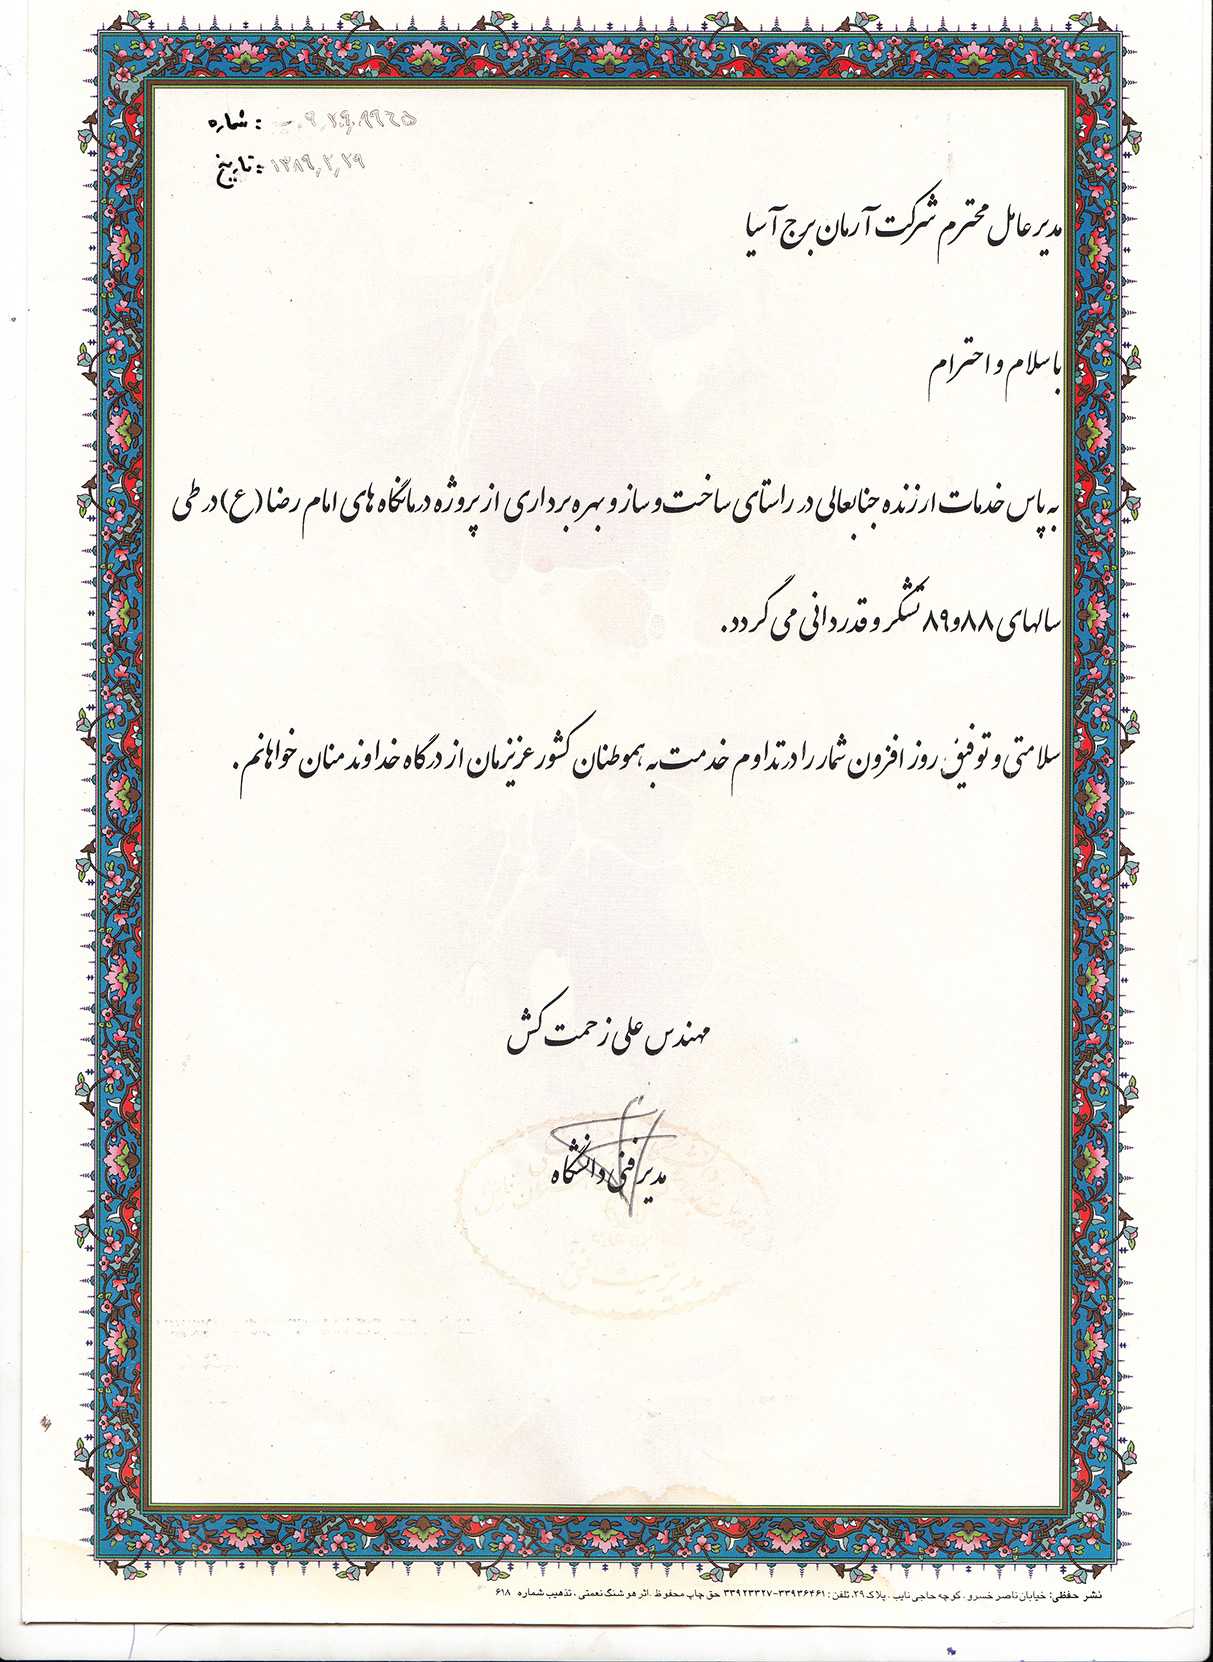 شماره:
تاریخ: ۱۳۸۹٫۲٫۲۹
مدیر عامل محترم شرکت آرمان برج آسیا
با سلام و احترام
به پاس خدمات ارزنده جنابعالی در راستای ساخت و ساز و بهره برداری از پروژه درمانگاه های امام رضا (ع) در طی
سالهای ۸۸و۸۹ تشکر و قدردانی می گردد.
سلامتی و توفیق روز افزون شمار را در تداوم خدمت به هموطنان کشور عزیزمان از درگاه خداوند منان خواهانم.
مهندس علی زحمت کش
مدیر فنی دانشگاه
مدیریت فنی
نشر حفظی: خیابان ناصر خسرو، کوچه حاجی نایب، پلاک ۲۹، تلفن: ۳۳۹۳۶۴۶۱-۳۳۹۲۳۳۲۷ حق چاپ محفوظ، اثر هوشنگ نعمتی، تذهیب شماره ۶۱۸